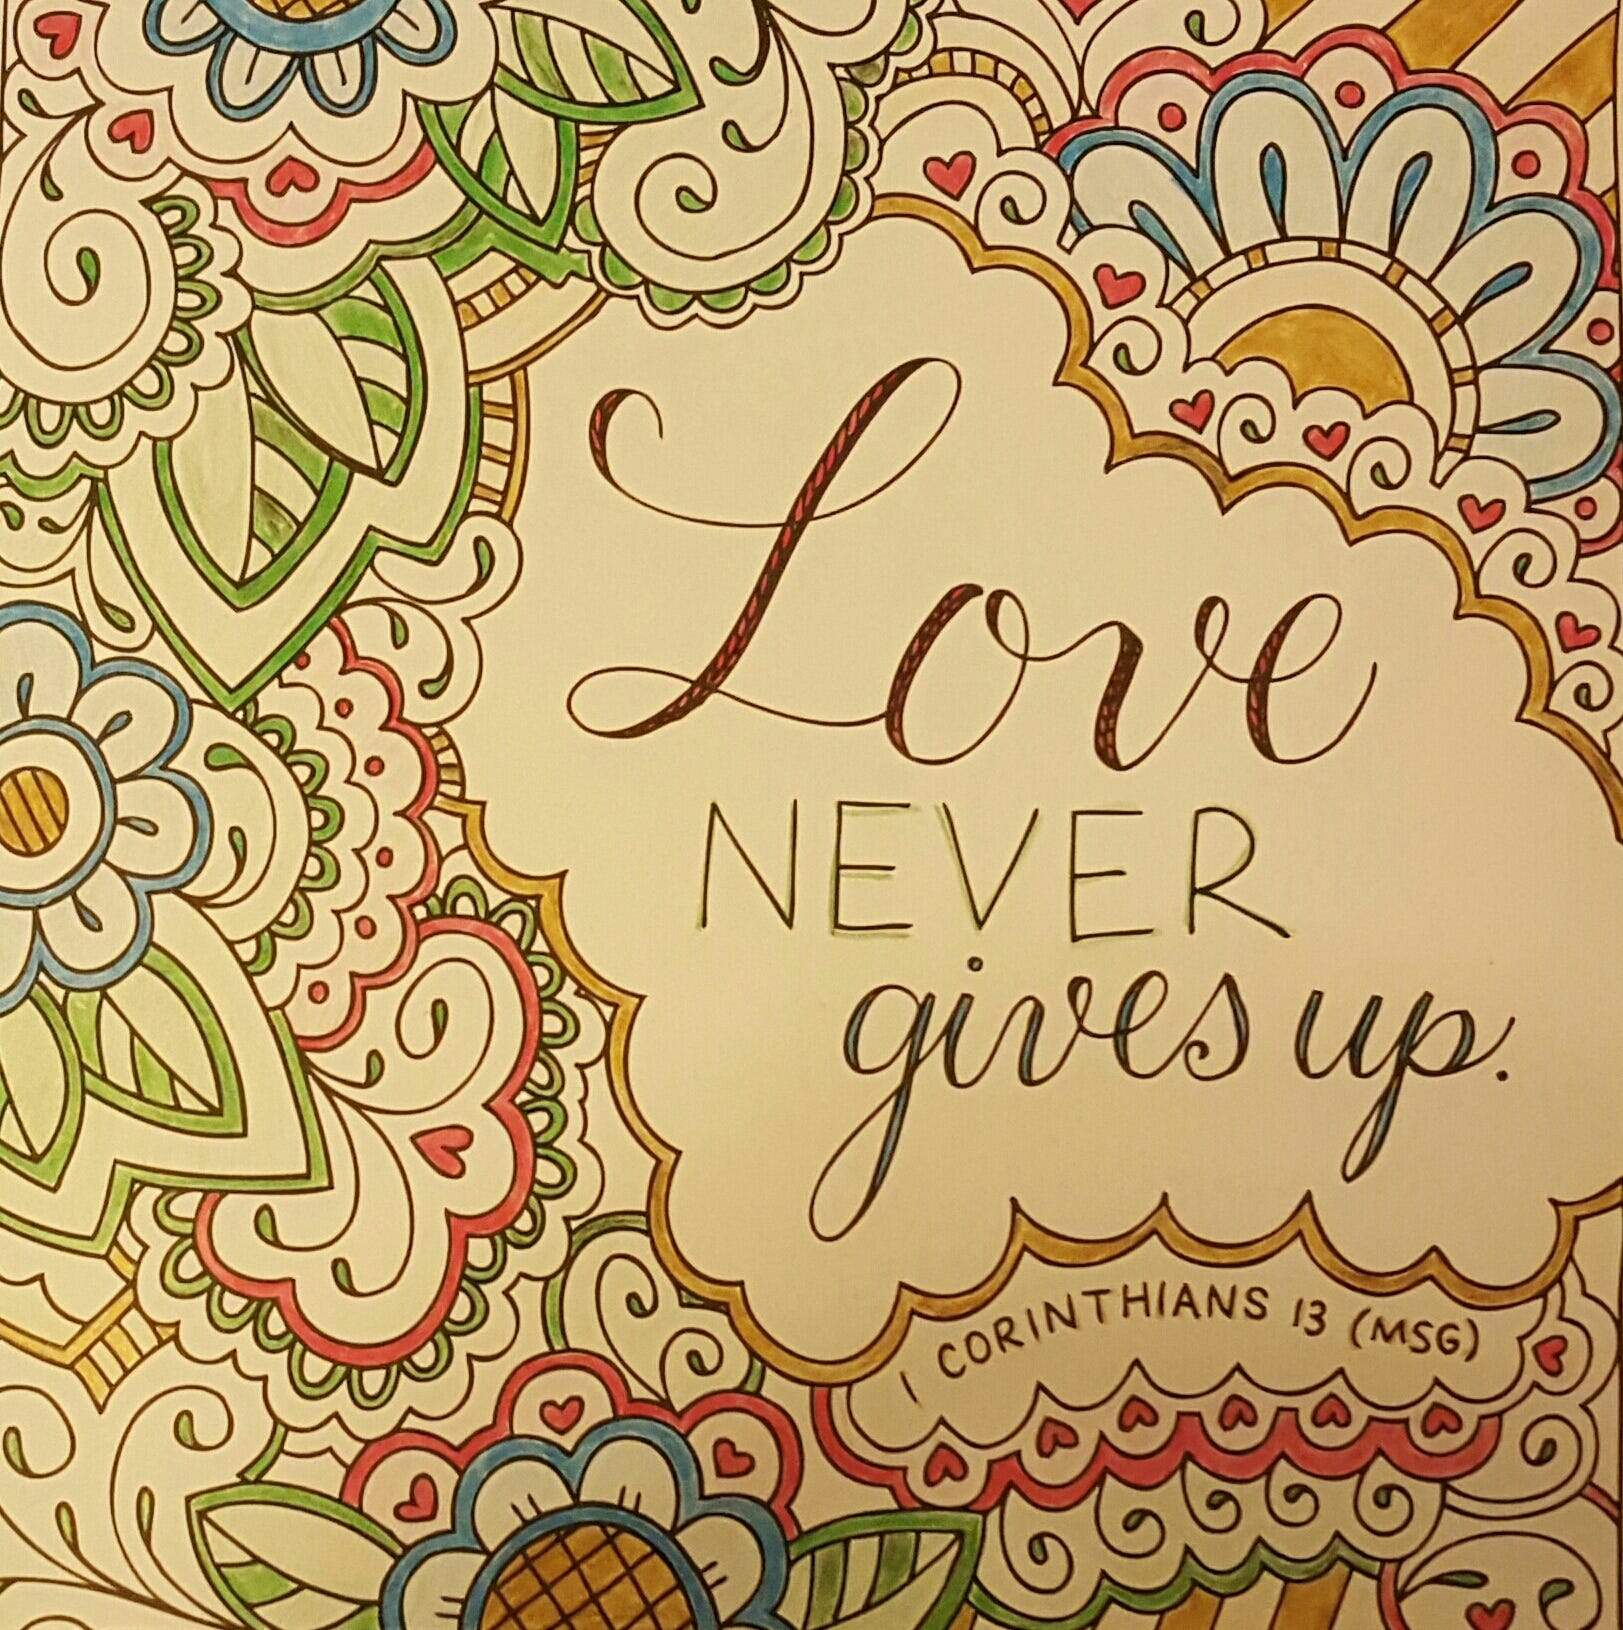 Love
NEVER
gives up.
1 CORINTHIANS 13 (MSG)